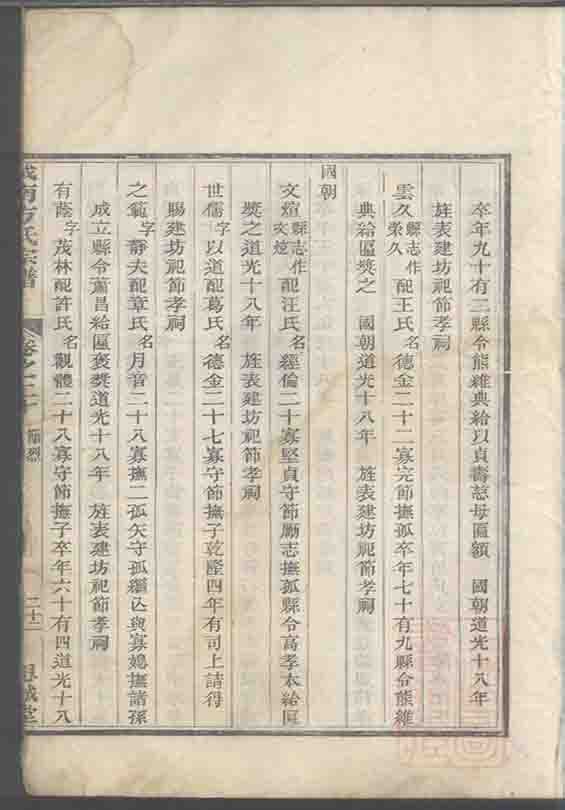 卒年九十有二縣令熊維典給以貞壽慈母匾額　國朝道光十八年
旌表建坊祀節孝祠
雲久縣志作榮久配王氏名德金二十二寡完節撫孤卒年七十有九縣令熊維
典給匾獎之　國朝道光十八年　旌表建坊祀節孝祠
國朝
文煊縣志作文炫配汪氏名經倫二十寡堅貞守節勵志撫孤縣令高孝本給匾
獎之道光十八年　旌表建坊祀節孝祠
世儒字以道配葛氏名德金二十七寡守節撫子乾隆四年有司上請得
賜建坊祀節孝祠
之範字靜夫配章氏名月音二十八寡撫二孤矢守孤繼亡與寡媳撫諸孫
成立縣令蕭昌給匾褒獎道光十八年　旌表建坊祀節孝祠
有蔭字茂林配許氏名觀體二十八寡守節撫子卒年六十有四道光十八
城南方氏宗譜　卷之　節烈　二十二　思誠堂